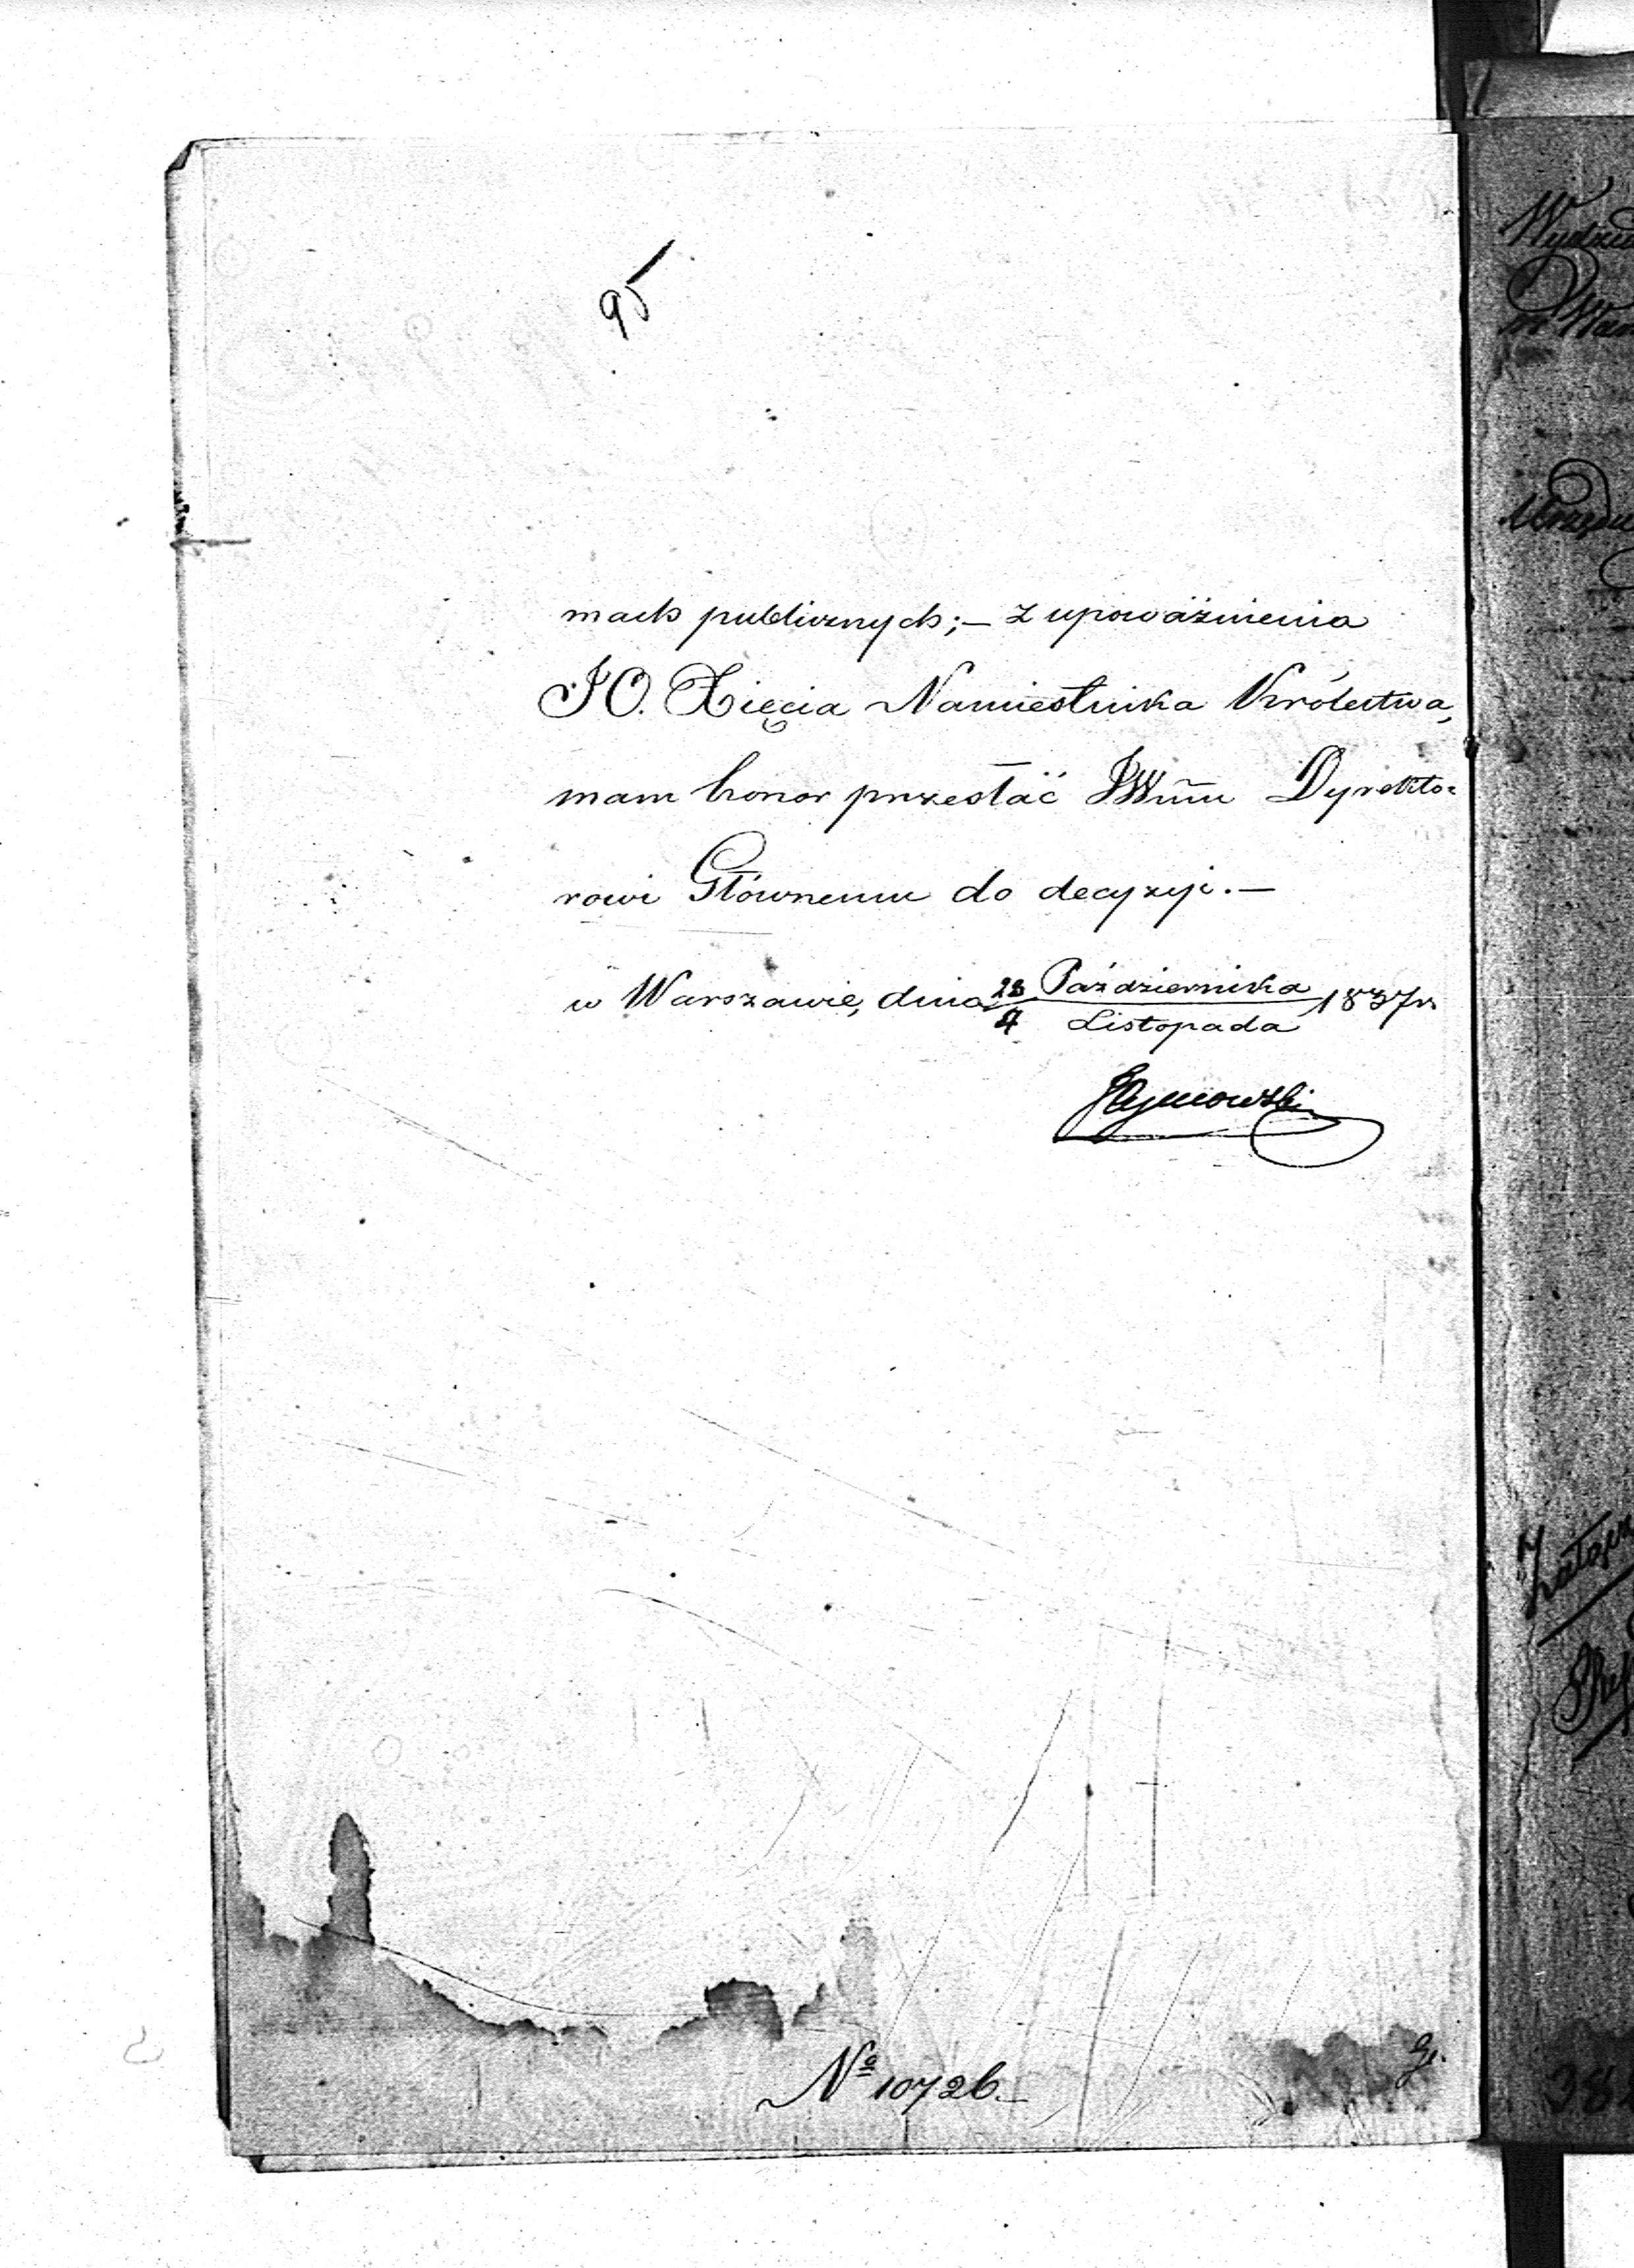 95
mach publicznych;— z upoważnienia
JO. Xięcia Namiestnika Królestwa,
mam honor przesłać JWmu Dyrekto=
rowi Głównemu do decyzyi.—
w Warszawie, dnia 23 Października / 4 Listopada 1837 r.
Nº 10726.